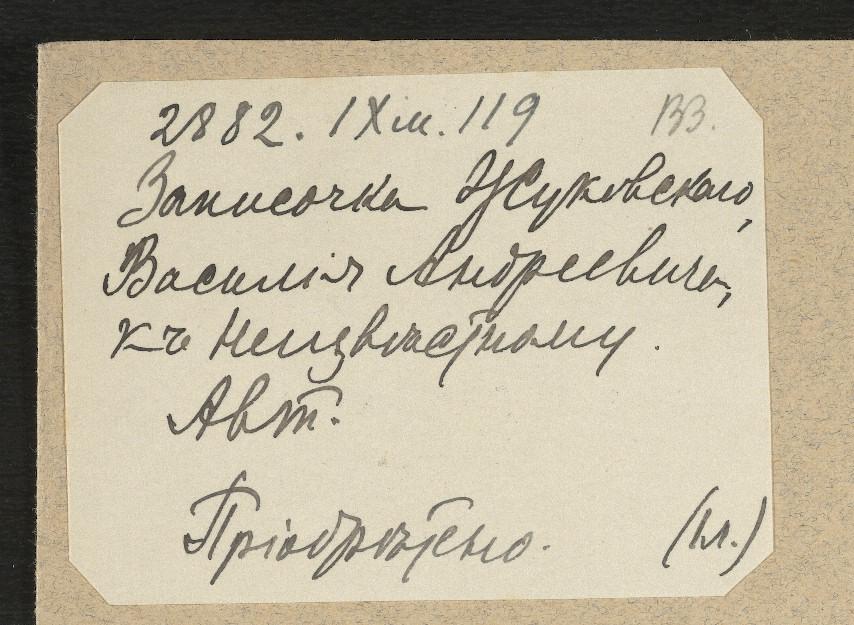 2882. IXм. 119 ВВ.
Записочка Жуковскаго,
Василія Андреевича,
къ Неизвѣстному.
Авт.
Пріобрѣтено. (1л.)